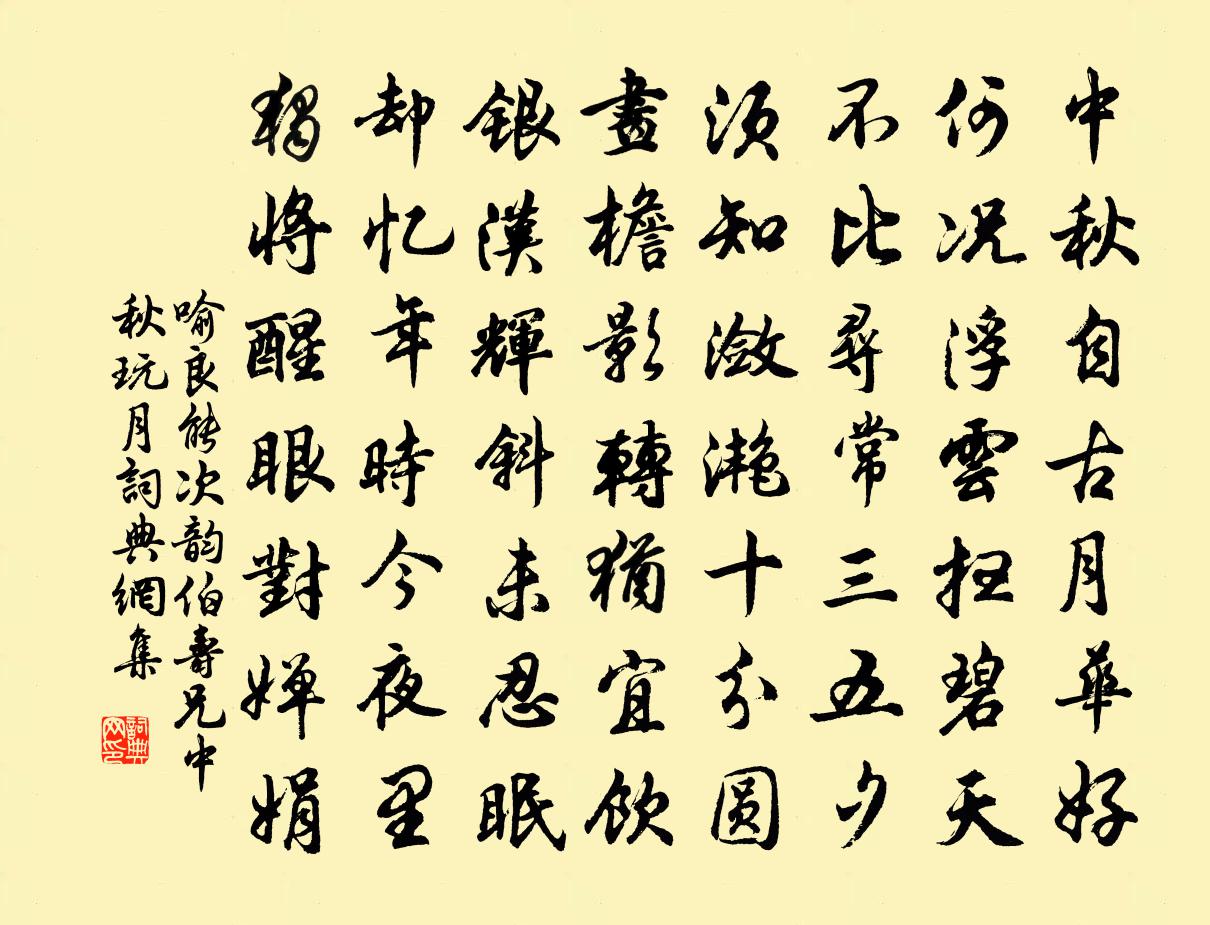 中秋自古月華好
何况浮雲扫碧天
不比尋常三五夕
须知潋滟十分圆
畫檐影轉猶宜飲
銀漢輝斜未忍眠
却忆年時今夜里
独将醒眼對婵娟
喻良能次韵伯壽兄中
秋玩月詞典網集
詞典
网印